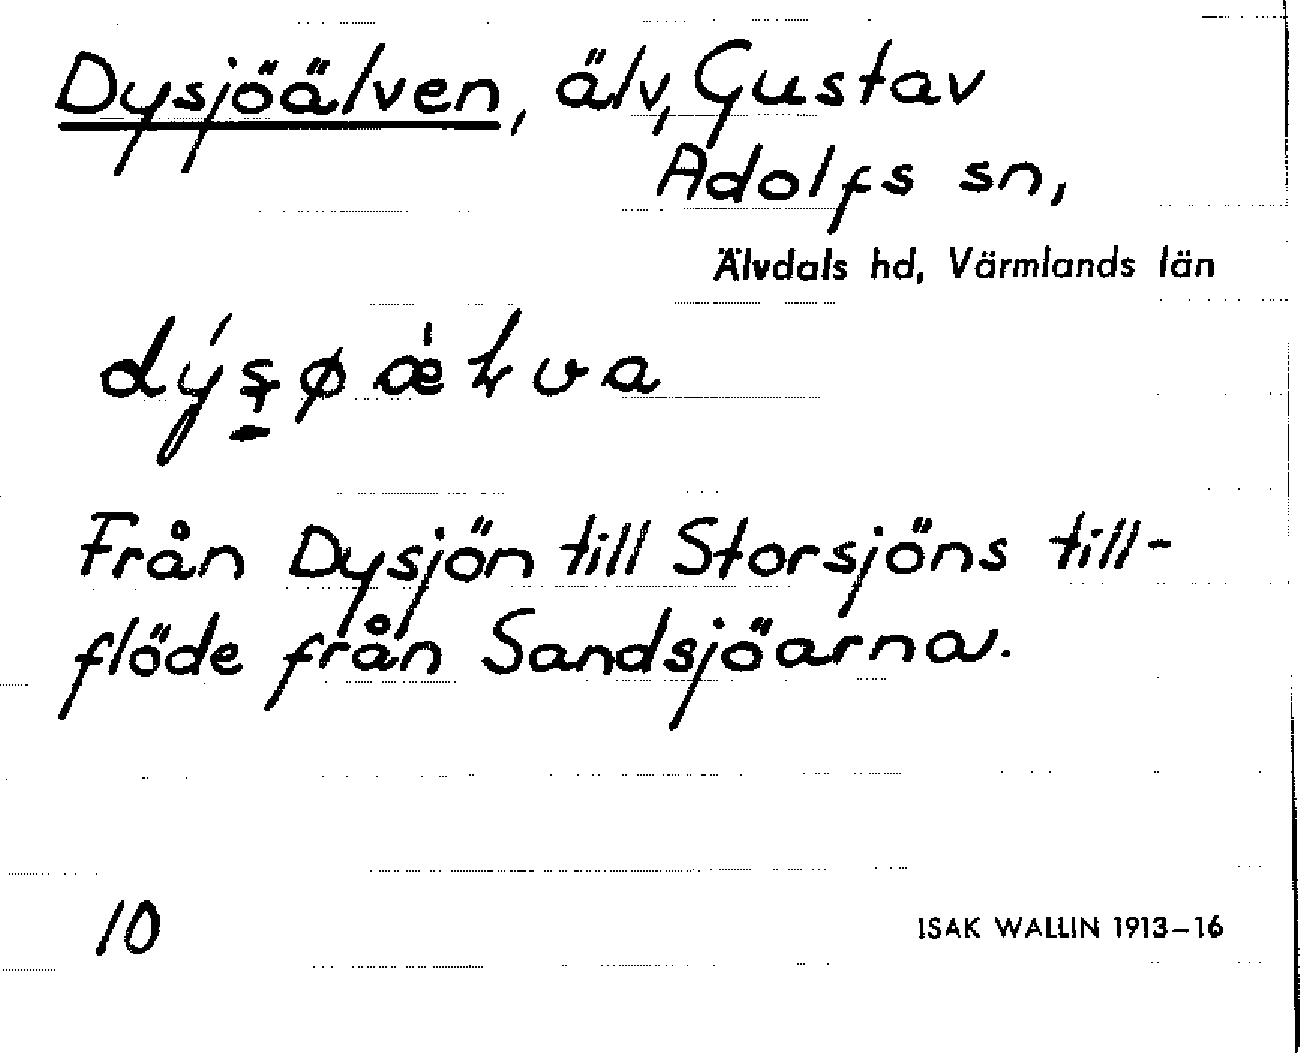 Dysjöälven, älv, Gustav
Adolfs sn,
Älvdals hd, Värmlands län
Från Dysjön till Storsjöns till-
flöde från Sandsjöarna.
10
ISAK WALLIN 1913–16